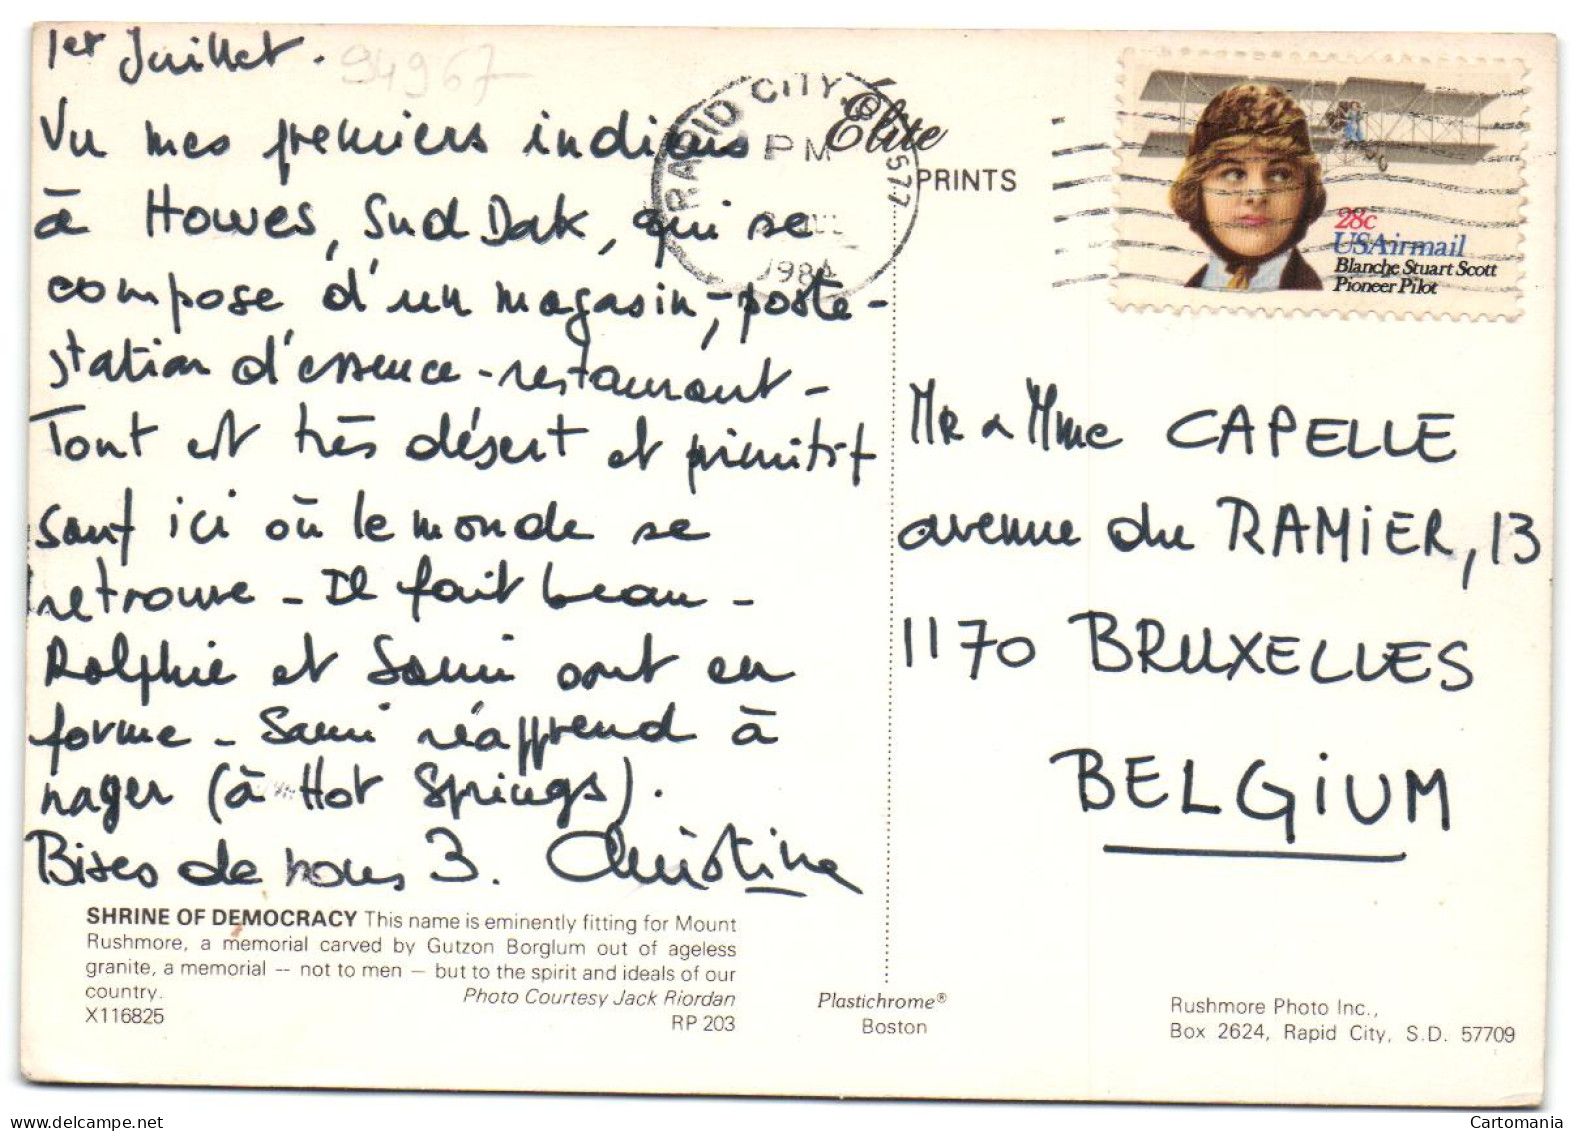 1er Juillet.
94967
Vu mes premiers indiens
à Howes, Sud Dak, qui se
compose d'un magasin-, poste-
station d'essence-restaurant-
Tout est très désert et primitif
sauf ici où le monde se
retrouve - Il fait beau -
Ralphie et Sami sont en
forme - Sami réapprend à
nager (à Hot Springs).
Bises de nous 3. Christine
SHRINE OF DEMOCRACY This name is eminently fitting for Mount
Rushmore, a memorial carved by Gutzon Borglum out of ageless
granite, a memorial -- not to men -- but to the spirit and ideals of our
country. Photo Courtesy Jack Riordan
X116825 RP 203
RAPID CITY, 577
PM
1984
Élite
PRINTS
28c
USAirmail
Blanche Stuart Scott
Pioneer Pilot
MR & Mme CAPELLE
avenue du RAMIER, 13
1170 BRUXELLES
BELGIUM
Plastichrome®
Boston
Rushmore Photo Inc.,
Box 2624, Rapid City, S.D. 57709
Cartomania